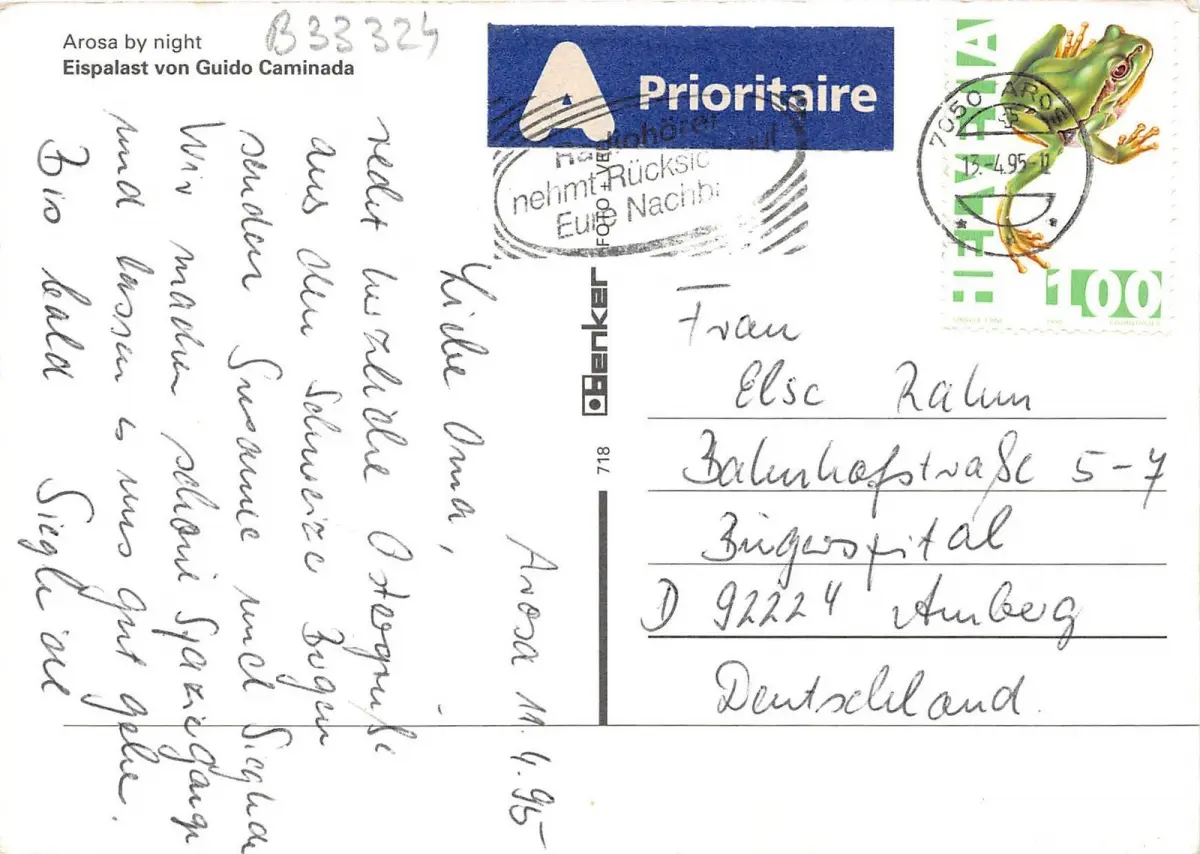 Arosa by night
Eispalast von Guido Caminada
B33324
A Prioritaire
nehmt Rücksic
Eure Nachb
HELVETIA
100
7050 AROS
13.-4.95-12
FOTO+VE
Benker
718
Arosa 11.4.95
Liebe Oma,
recht herzliche Ostergrüße
aus den Schweizer Bergen
senden Susanne und Sieglinde
Wir machen schöne Spaziergänge
und lassen es uns gut gehen.
Bis bald Sieglinde
Frau
Else Rahm
Bahnhofstraße 5-7
Bürgerspital
D 92224 Amberg
Deutschland.